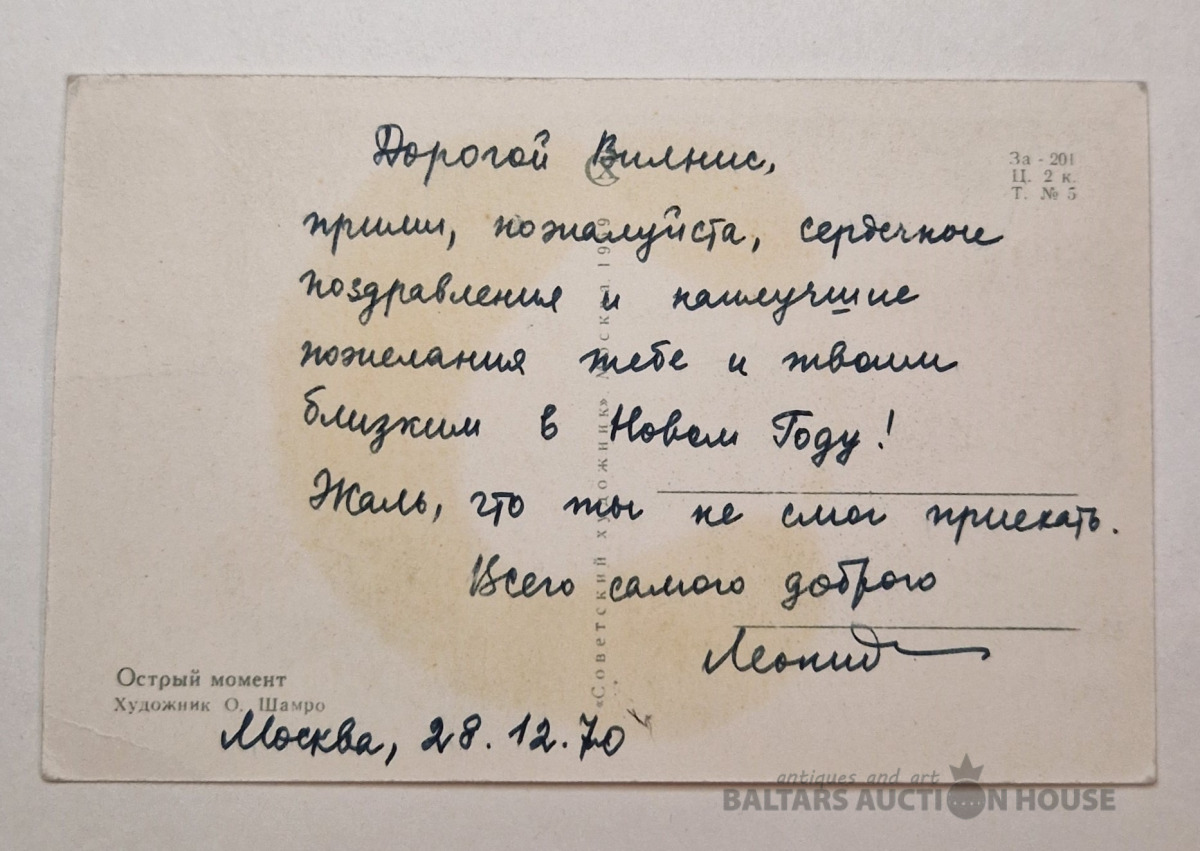 Дорогой Вилнис,
прими, пожалуйста, сердечные
поздравления и наилучшие
пожелания тебе и твоим
близким в Новом Году!
Жаль, что ты не смог приехать.
Всего самого доброго
Леонид
Москва, 28.12.70
За - 201
Ц. 2 к.
Т. № 5
«Советский художник» Москва
Острый момент
Художник О. Шамро
antiques and art
BALTARS AUCTION HOUSE